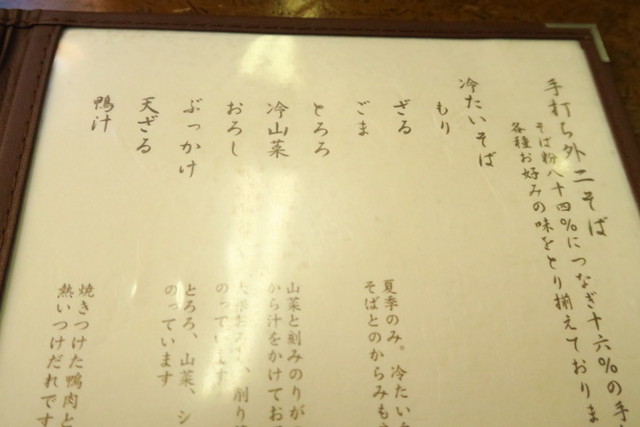 手打ち外二そば
そば粉八十四%につなぎ十六%の手
各種お好みの味をとり揃えておりま
冷たいそば
もり
ざる
ごま
夏季のみ。冷たい
そばとのからみも
とろろ
冷山菜
山菜と刻みのりが
から汁をかけてお
おろし
おろし、削り
のっています
ぶっかけ
とろろ、山菜、シ
のっています
天ざる
鴨汁
焼きつけた鴨肉と
熱いつけだれです